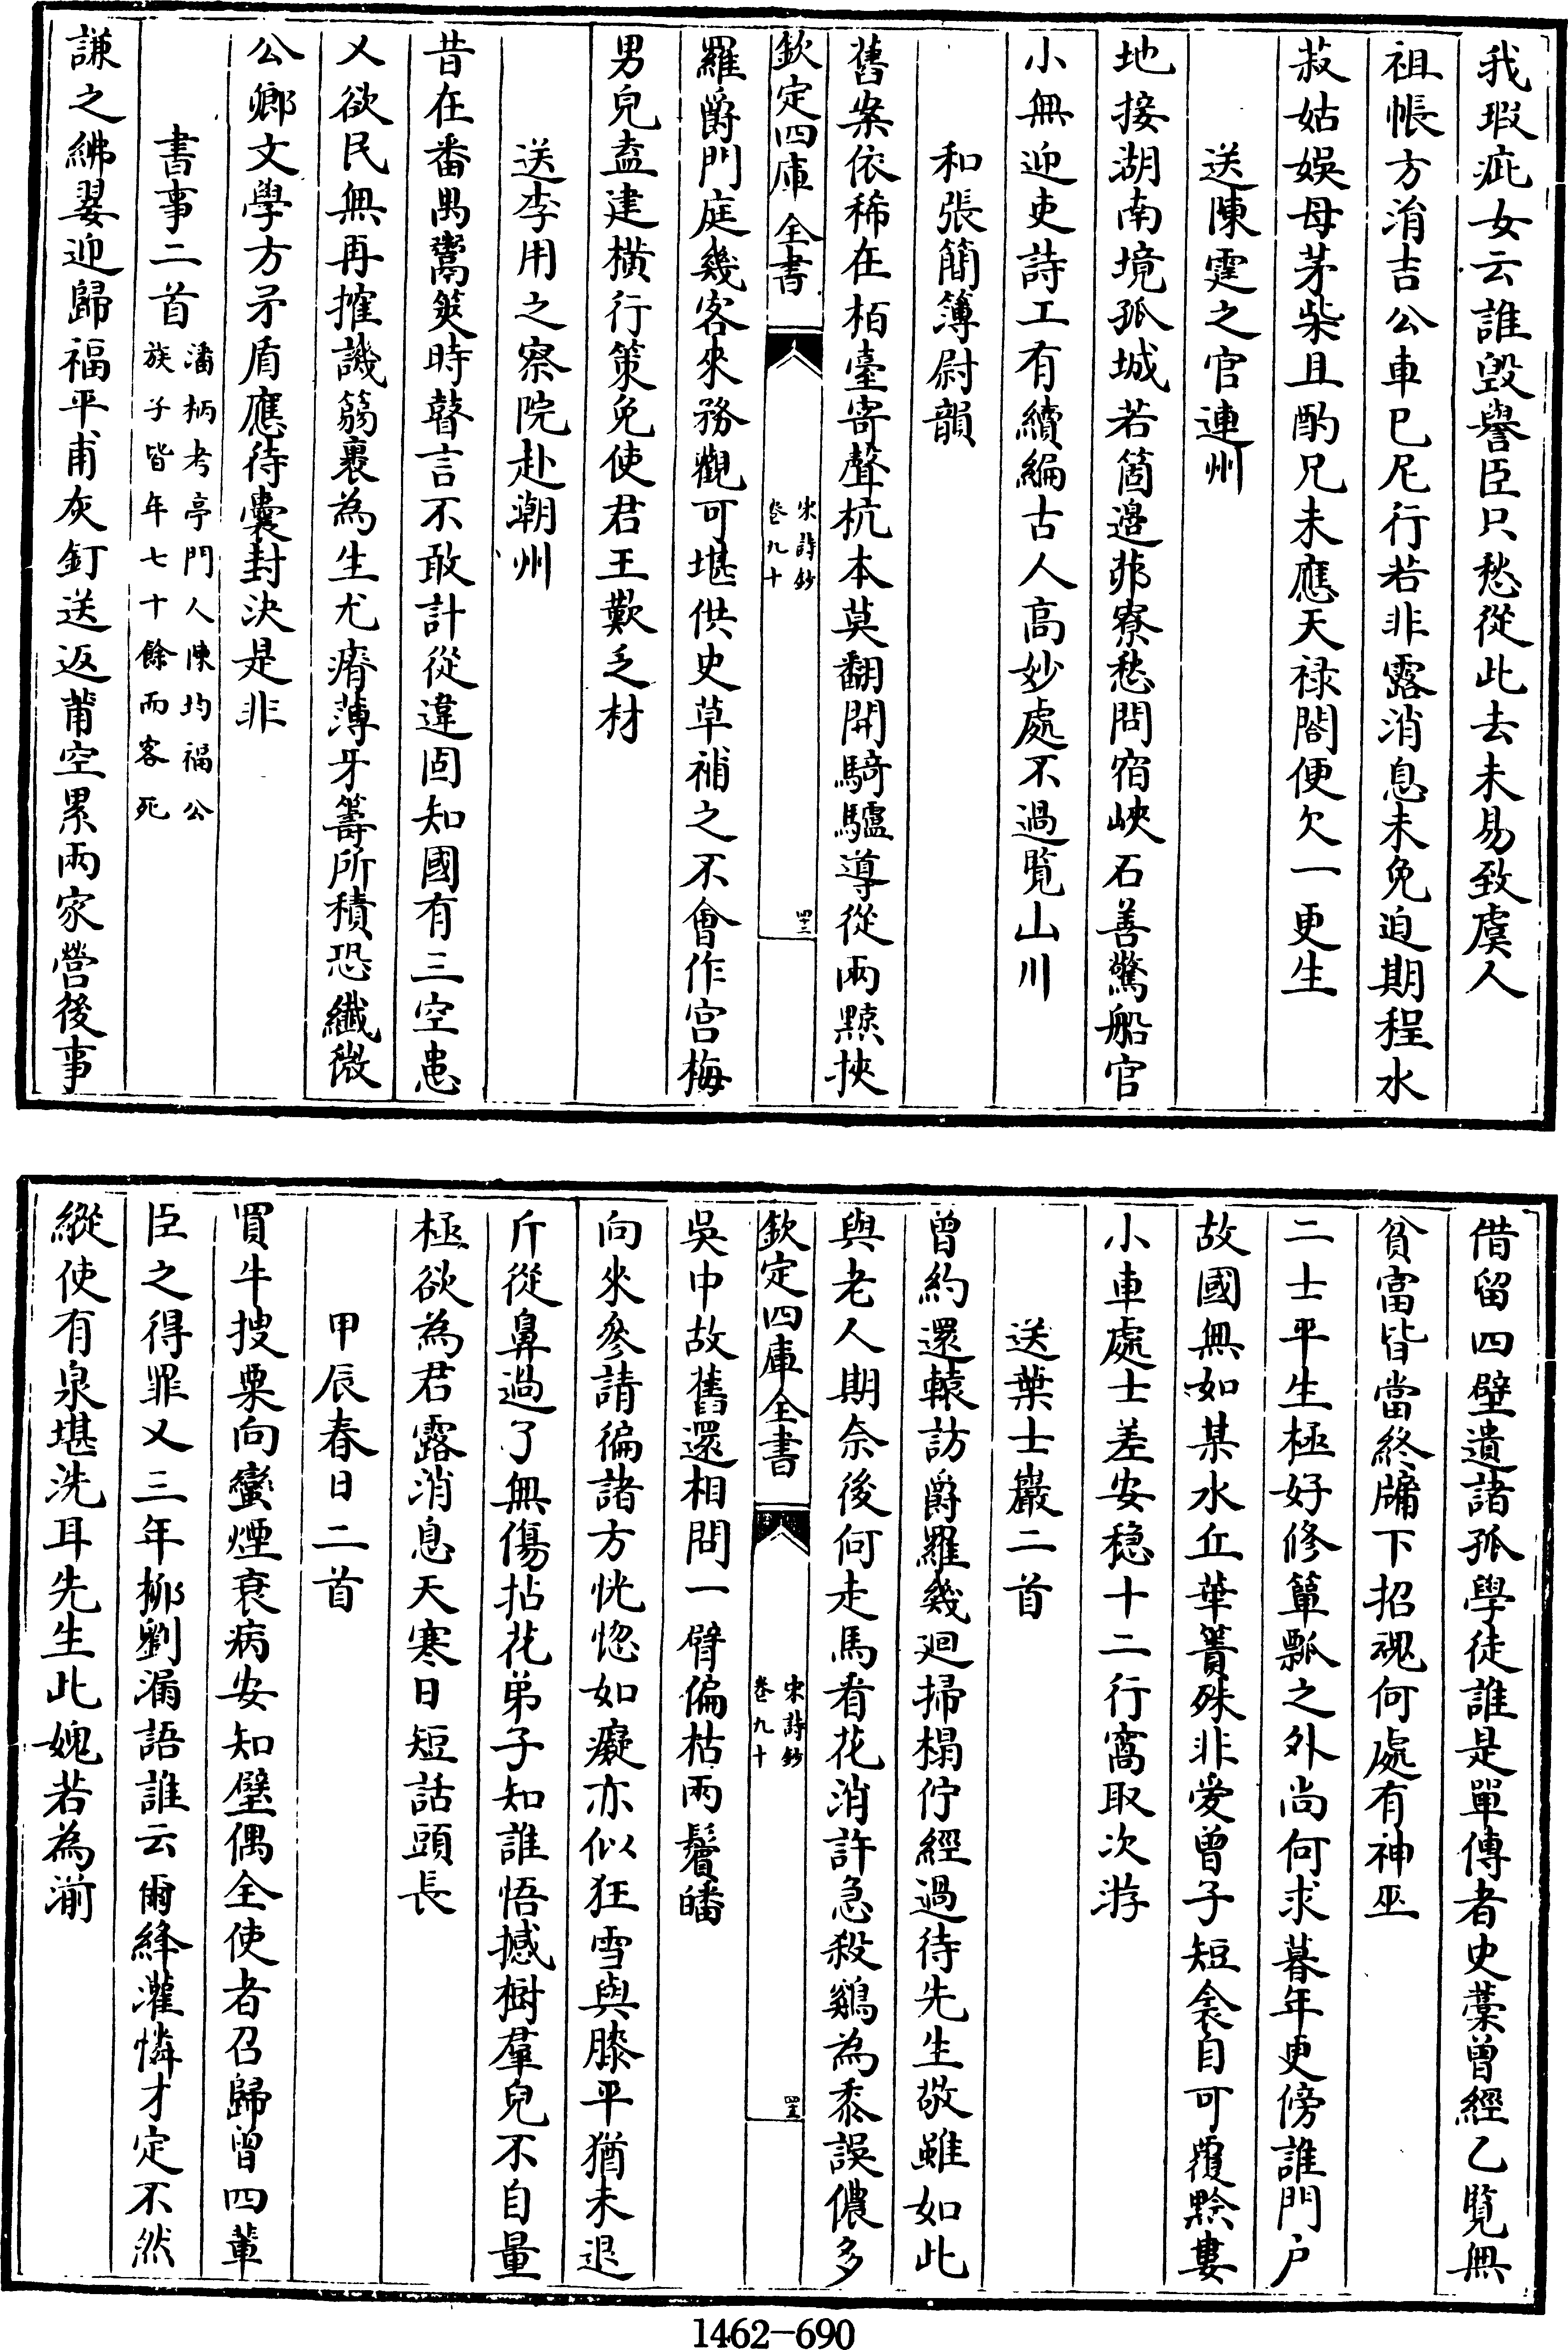 我瑕疵女云誰毀譽臣只愁從此去未易致虞人
祖帳方消吉公車已尼行若非露消息未免迫期程水
菽姑娛母茅柴且酌兄未應天禄閣便欠一更生
送陳霆之官連州
地接湖南境孤城若箇邉郍寮愁問宿峽石善驚船官
小無迎吏詩工有續編古人高妙處不過覧山川
和張簡簿尉韻
舊案依稀在栢臺寄聲杭本莫翻開騎驢導從兩黥挾
欽定四庫全書
宋詩鈔
卷九十
四十二
羅爵門庭幾客來務觀可堪供史草補之不會作宫梅
男兒盍建橫行策免使君王歎乏材
送李用之察院赴潮州
昔在番禺鬻筴時瞽言不敢計從違固知國有三空患
乂欲民無再搉譏篘裹為生尤瘠薄牙籌所積恐纎微
公卿文學方矛盾應待囊封決是非
書事二首
潘柄考亭門人陳均福公
族子皆年七十餘而客死
謙之紼翣迎歸福平甫灰釘送返莆空累兩家營後事
借留四壁遺諸孤學徒誰是單傳者史藁曾經乙覧無
貧富皆當終牖下招魂何處有神巫
二士平生極好修簞瓢之外尚何求暮年更傍誰門户
故國無如某水丘華簀殊非愛曾子短衾自可覆黔婁
小車處士差安穏十二行窩取次游
送葉士巖二首
曾約還轅訪爵羅幾迴掃榻佇經過待先生敬雖如此
與老人期奈後何走馬看花消許急殺鷄為黍誤儂多
欽定四庫全書
宋詩鈔
卷九十
四十三
吳中故舊還相問一臂偏枯兩鬢皤
向來參請徧諸方恍惚如癡亦似狂雪與膝平猶未退
斤從鼻過了無傷拈花弟子知誰悟撼樹羣兒不自量
極欲為君露消息天寒日短話頭長
甲辰春日二首
買牛捜粟向蠻煙衰病安知璧偶全使者召歸曾四輩
臣之得罪又三年栁劉漏語誰云爾絳灌憐才定不然
縱使有泉堪洗耳先生此媿若為湔
1462-690